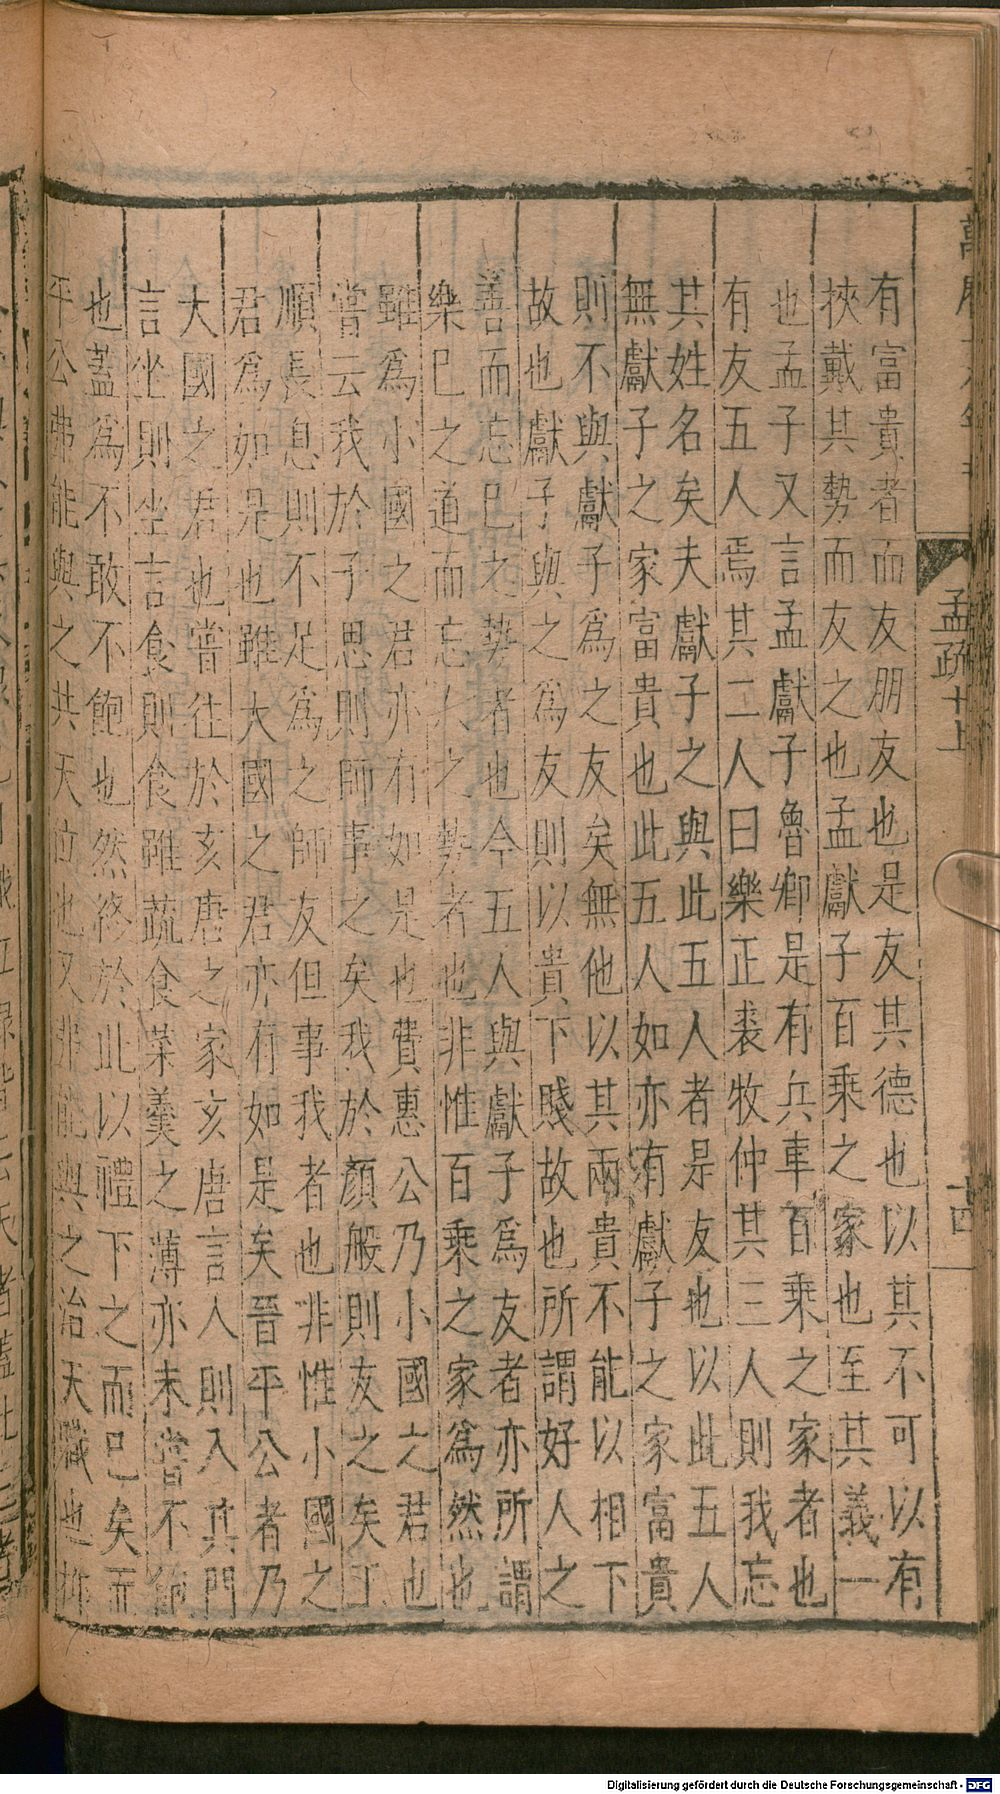 孟疏十上
十四
有富貴者而友朋友也是友其德也以其不可以有
挾戴其勢而友之也孟獻子百乘之家也至其義一
也孟子又言孟獻子魯卿是有兵車百乘之家者也
有友五人焉其二人曰樂正裘牧仲其三人則我忘
其姓名矣夫獻子之與此五人者是友也以此五人
無獻子之家富貴也此五人如亦有獻子之家富貴
則不與獻子為之友矣無他以其兩貴不能以相下
故也獻子與之為友則以貴下賤故也所謂好人之
善而忘己之勢者也今五人與獻子為友者亦所謂
樂己之道而忘人之勢者也非惟百乘之家為然也
雖為小國之君亦有如是也費惠公乃小國之君也
嘗云我於子思則師事之矣我於顏般則友之矣王
順長息則不足為之師友但事我者也非惟小國之
君為如是也雖大國之君亦有如是矣晉平公者乃
大國之君也嘗往於亥唐之家亥唐言人則入其門
言坐則坐言食則食雖蔬食菜羹之薄亦未嘗不飽
也蓋為不敢不飽也然終於此以禮下之而已矣而
平公弗能與之共天位也又弗能與之治天職也抑
Digitalisierung gefördert durch die Deutsche Forschungsgemeinschaft - DFG